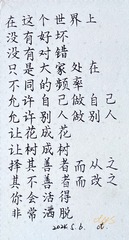 在这个世界上
没有好坏
没有对错
只是大家处在
不同的频率
允许自己做自己
允许别人做别人
让花成花
让树成树
择其善者而从之
其不善者而改之
你会活得
非常洒脱